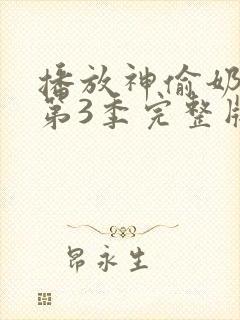 播放神偷奶
第3季完整版
昂永生